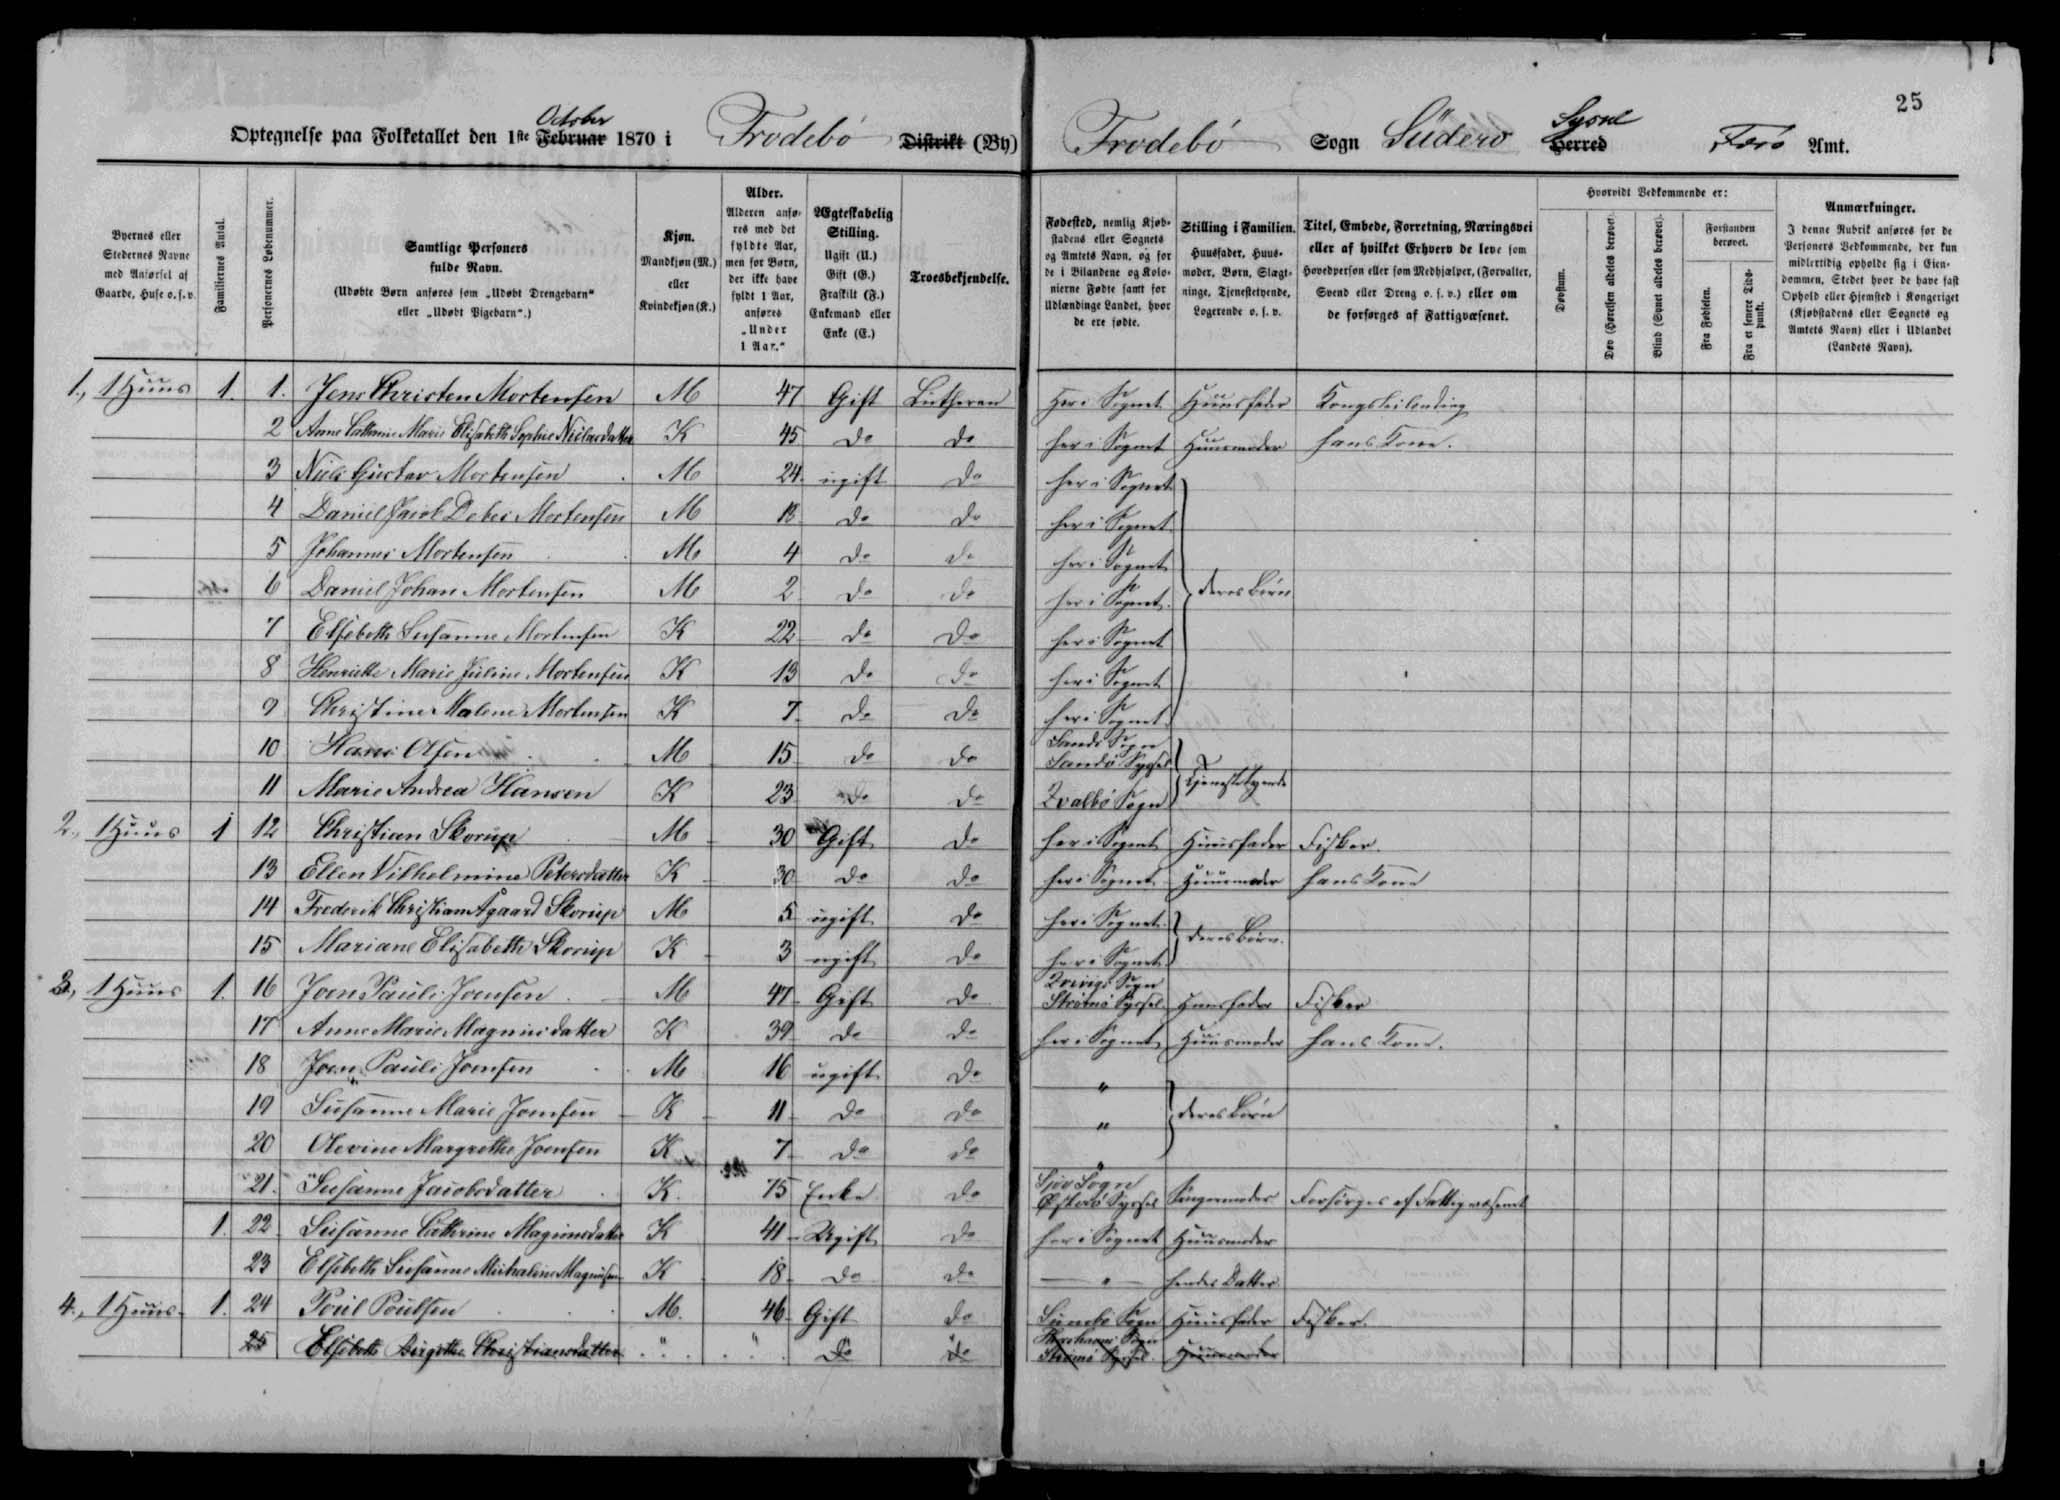 25
October
Optegnelse paa Folketallet den 1ste Februar 1870 i Frodebö Distrikt (By)
Frodebö Sogn Süderö Herred Færö Amt.
Sysæl
Byernes eller Stedernes Navne med Anførsel af Gaarde, Huse o. s. v.
Familiernes Antal.
Personernes Løbenummer.
Samtlige Personers fulde Navn.
(Udøbte Børn anføres som „Udøbt Drengebarn“ eller „Udøbt Pigebarn“.)
Kjøn. Mandkjøn (M.) eller Kvindekjøn (K.)
Alder. Alderen anføres med det fyldte Aar, men for Børn, der ikke have fyldt 1 Aar, anføres „Under 1 Aar.“
Ægteskabelig Stilling. Ugift (U.) Gift (G.) Fraskilt (F.) Enkemand eller Enke (E.)
Troesbekjendelse.
Fødested, nemlig Kjøbstadens eller Sognets og Amtets Navn, og for de i Bilandene og Kolonierne Fødte samt for Udlændinge Landet, hvor de ere fødte.
Stilling i Familien. Huusfader, Huusmoder, Børn, Slægtninge, Tjenestetyende, Logerende o. s. v.
Titel, Embede, Forretning, Næringsvei eller af hvilket Erhverv de leve som Hovedperson eller som Medhjælper, (Forvalter, Svend eller Dreng o. s. v.) eller om de forsørges af Fattigvæsenet.
Hvorvidt Vedkommende er:
Døvstum.
Døv (Hørelsen aldeles berøvet).
Blind (Synet aldeles berøvet).
Forstanden berøvet.
Fra Fødselen.
Fra et senere Tidspunkt.
Anmærkninger. I denne Rubrik anføres for de Personers Vedkommende, der kun midlertidig opholde sig i Eiendommen, Stedet hvor de have fast Ophold eller Hjemsted i Kongeriget (Kjøbstadens eller Sognets og Amtets Navn) eller i Udlandet (Landets Navn).
1., 1 Huus 1. 1. Jens Christen Mortensen M 47 Gift Lutheran Her i Sognet Huusfader
2 Anne Cathrine Marie Elisabeth Sophie Nielsdatter K 45 do do her i Sognet Huusmoder hans Kone.
3 Niels Gustav Mortensen M 24 ugift do her i Sognet
4 Daniel Jacob Debes Mortensen M 18 do do her i Sognet
5 Johannes Mortensen M 4 do do her i Sognet
6 Daniel Johan Mortensen M 2 do do her i Sognet. deres Børn
7 Elsebeth Susanne Mortensen K 22 do do her i Sognet
8 Henriette Marie Juline Mortensen K 13 do do her i Sognet
9 Christine Malene Mortensen K 7 do do her i Sognet
10 Hans Olsen M 15 do do Sands Sogn Sandö Syssel
11 Marie Andrea Hansen K 23 do do Qvalbö Sogn Tjenestetyende
2., 1 Huus 1 12 Christian Skorup M 30 Gift do her i Sognet Huusfader Fisker.
13 Ellen Vilhelmine Petersdatter K 30 do do her i Sognet Huusmoder hans Kone
14 Frederik Christian Agaard Skorup M 5 ugift do her i Sognet
15 Mariane Elisabeth Skorup K 3 ugift do her i Sognet deres Børn.
3., 1 Huus 1. 16 Joen Pauli Joensen M 47 Gift do Qvivigs Sogn Strömö Syssel. Huusfader Fisker
17 Anne Marie Magnusdatter K 39 do do her i Sognet Huusmoder hans Kone.
18 Joen Pauli Joensen M 16 ugift do "
19 Susanne Marie Joensen K 11 do do " deres Børn
20 Olevine Margrethe Joensen K 7 do do "
21. Susanne Jacobsdatter K. 75 Enke do Sjov Sogn Österö Syssel Forsørges af Fattigvæsenet
1. 22 Susanne Cathrine Magnusdatter K 41 Ugift do her i Sognet Huusmoder
23 Elsebeth Susanne Michaline Magnusen K 18 do do " hendes Datter.
4., 1 Huus 1. 24 Poul Poulsen M. 46 Gift do Sumbö Sogn Huusfader Fisker.
25 Elsebeth Birgithe Christiansdatter " " do do Thorshavns Sogn Strömö Syssel. Huusmoder